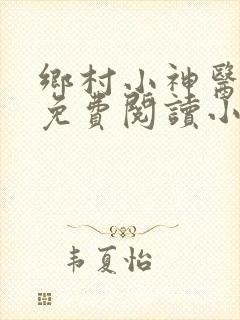 鄉村小神醫
免費閱讀小
韦夏怡